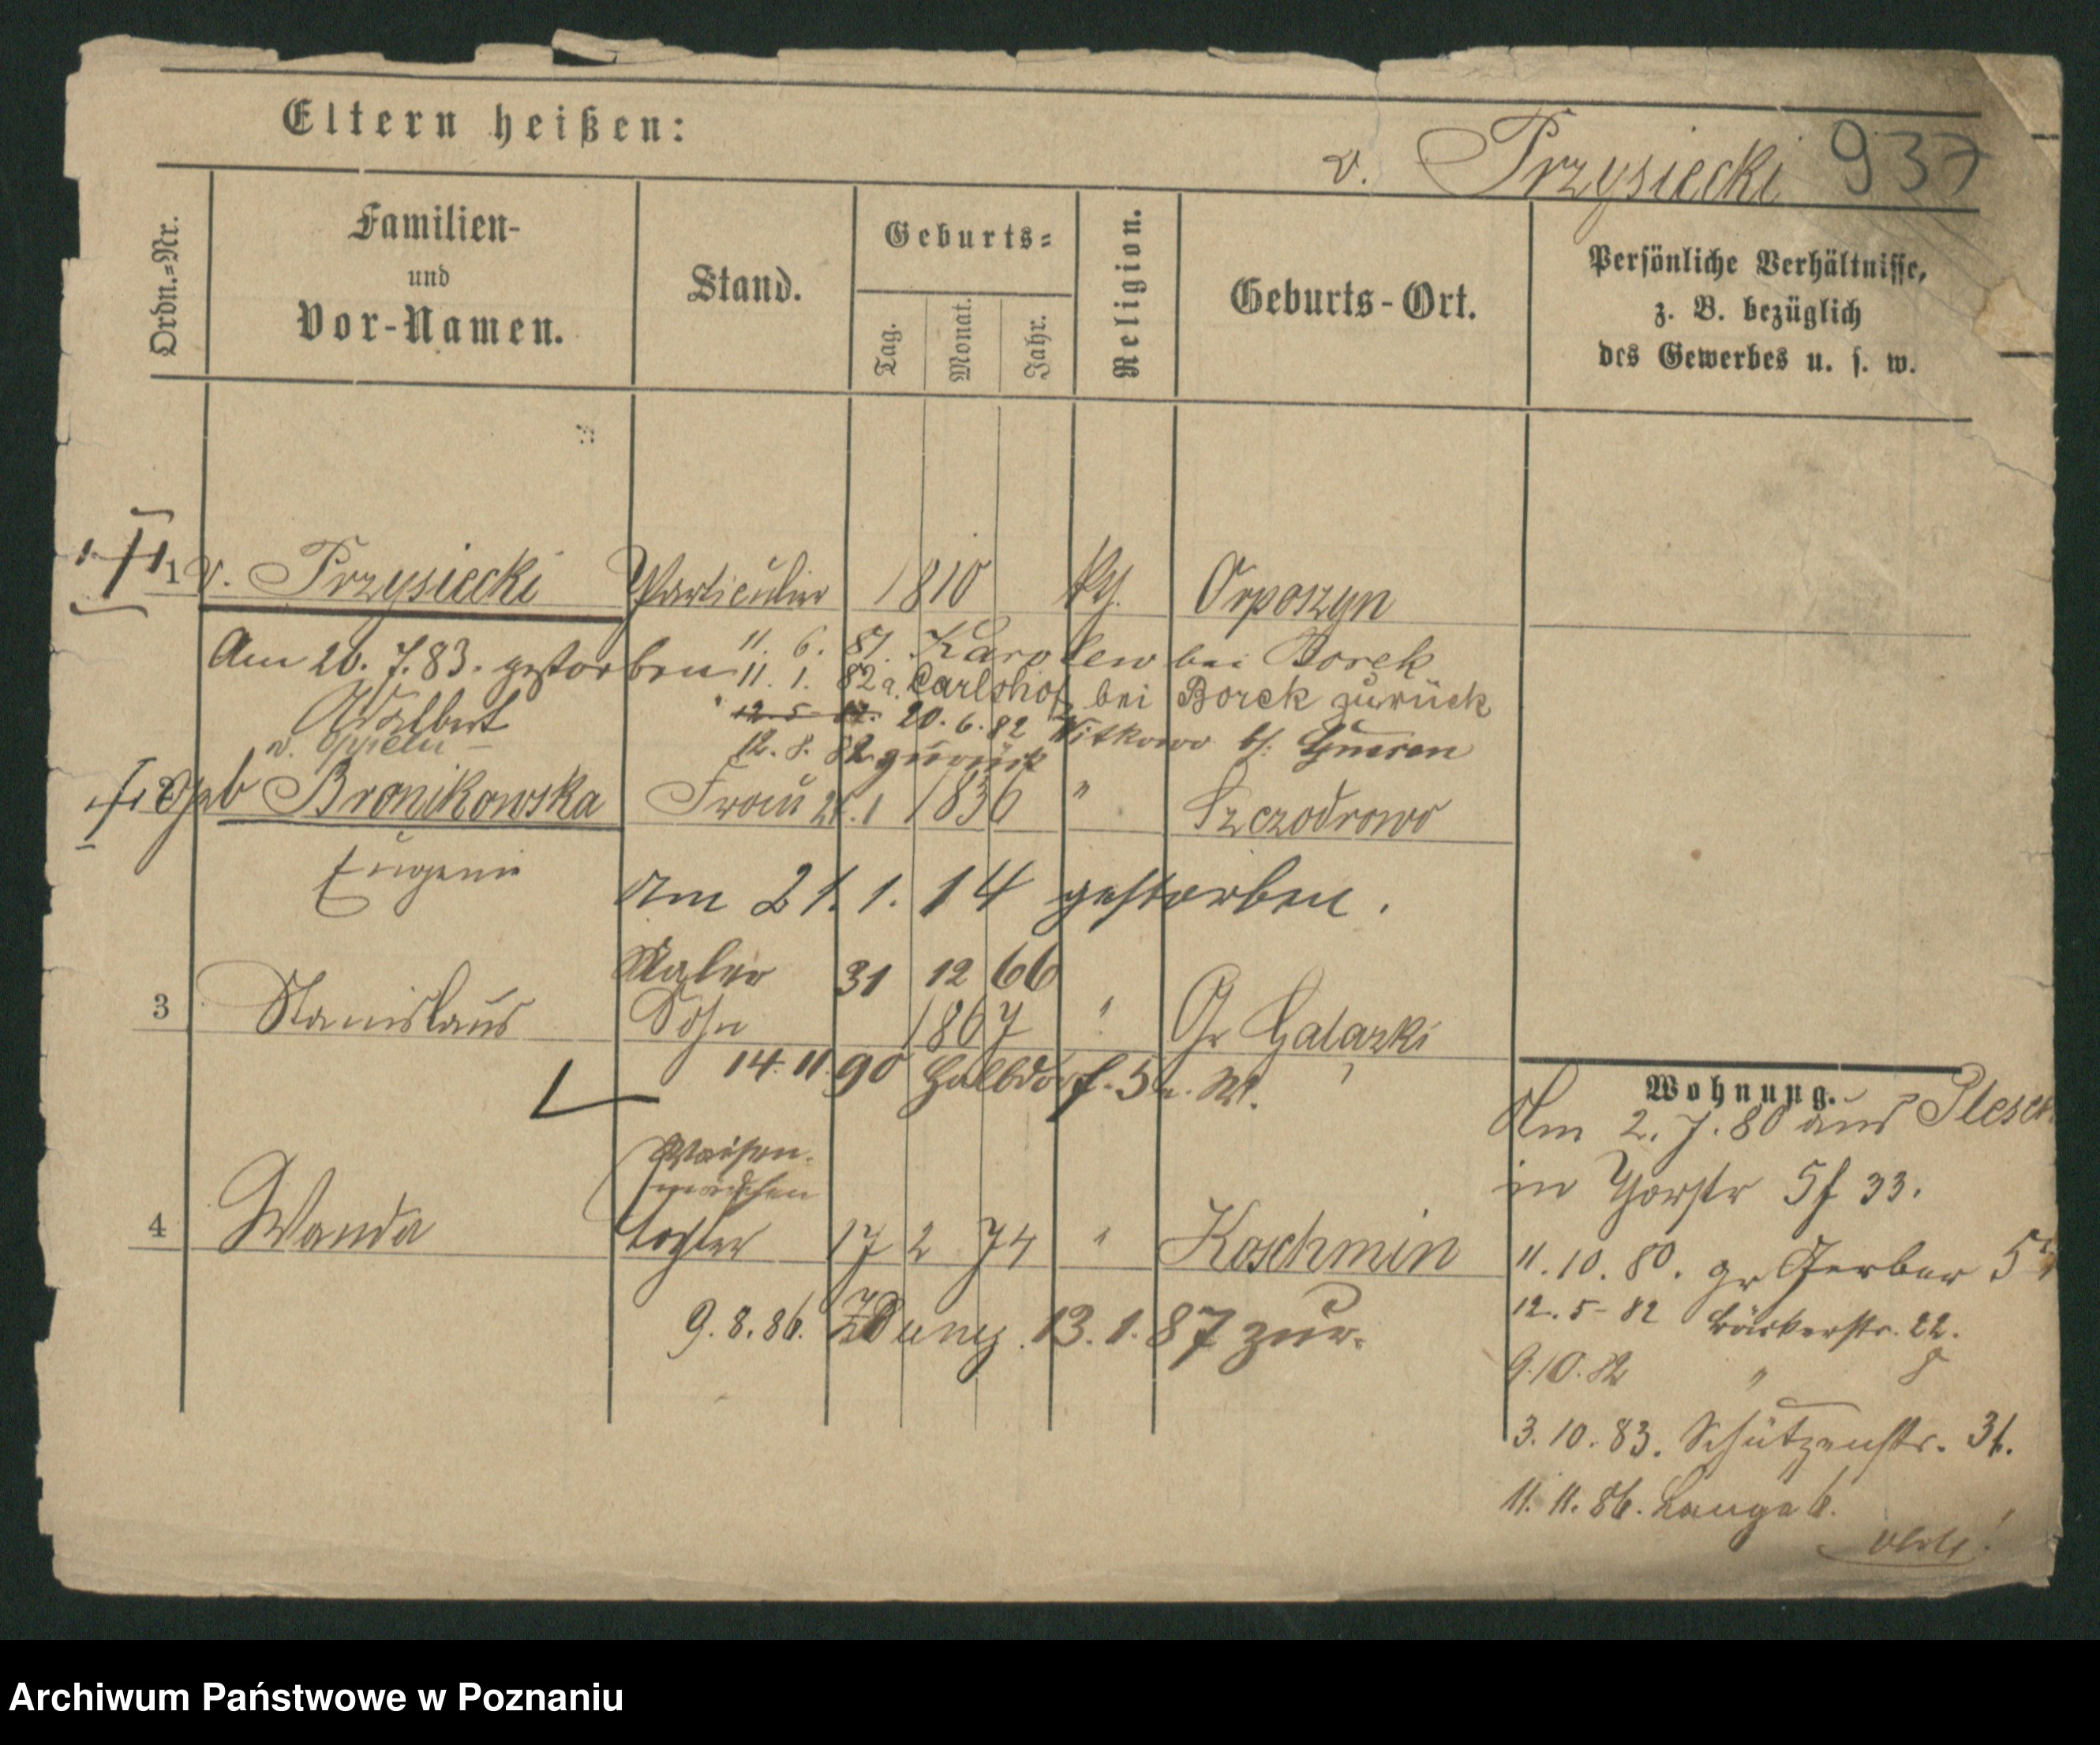 Eltern heißen:
v. Przysiecki 937
Ordn.=Nr.
Familien-
und
Vor-Namen.
Stand.
Geburts=
Tag.
Monat.
Jahr.
Religion.
Geburts-Ort.
Persönliche Verhältnisse,
z. B. bezüglich
des Gewerbes u. s. w.
1 v. Przysiecki Particulier 1810 Orposzyn
Am 20. 7. 83. gestorben 11. 6. 81. Karolew bei Borek
11. 1. 82 a. Carlshof bei Borek zurück
Adalbert 12. 5 82. 20. 6. 82 Witkowo
12. 8. 82 zurück
geb Bronikowska Frau 1836 " Szczodrowo
Eugenie
Am 21. 1. 14 gestorben.
Maler 31 12 66
3 Stanislaus Sohn 1867 " Gr Galazki
14. 11. 90 Halbdorf. 5
Waisen-
mädchen
4 Wanda Tochter 17 2 74 " Koschmin
9. 8. 86. Zduny. 13. 1. 87 zur.
Wohnung.
Am 2. 7. 80 aus
in 33.
11. 10. 80. gr Gerber
12. 5- 82 Bäckerstr. 22.
9. 10. 82 " 8
3. 10. 83. Schützenstr. 31.
11. 11. 86. Lange 6.
Archiwum Państwowe w Poznaniu